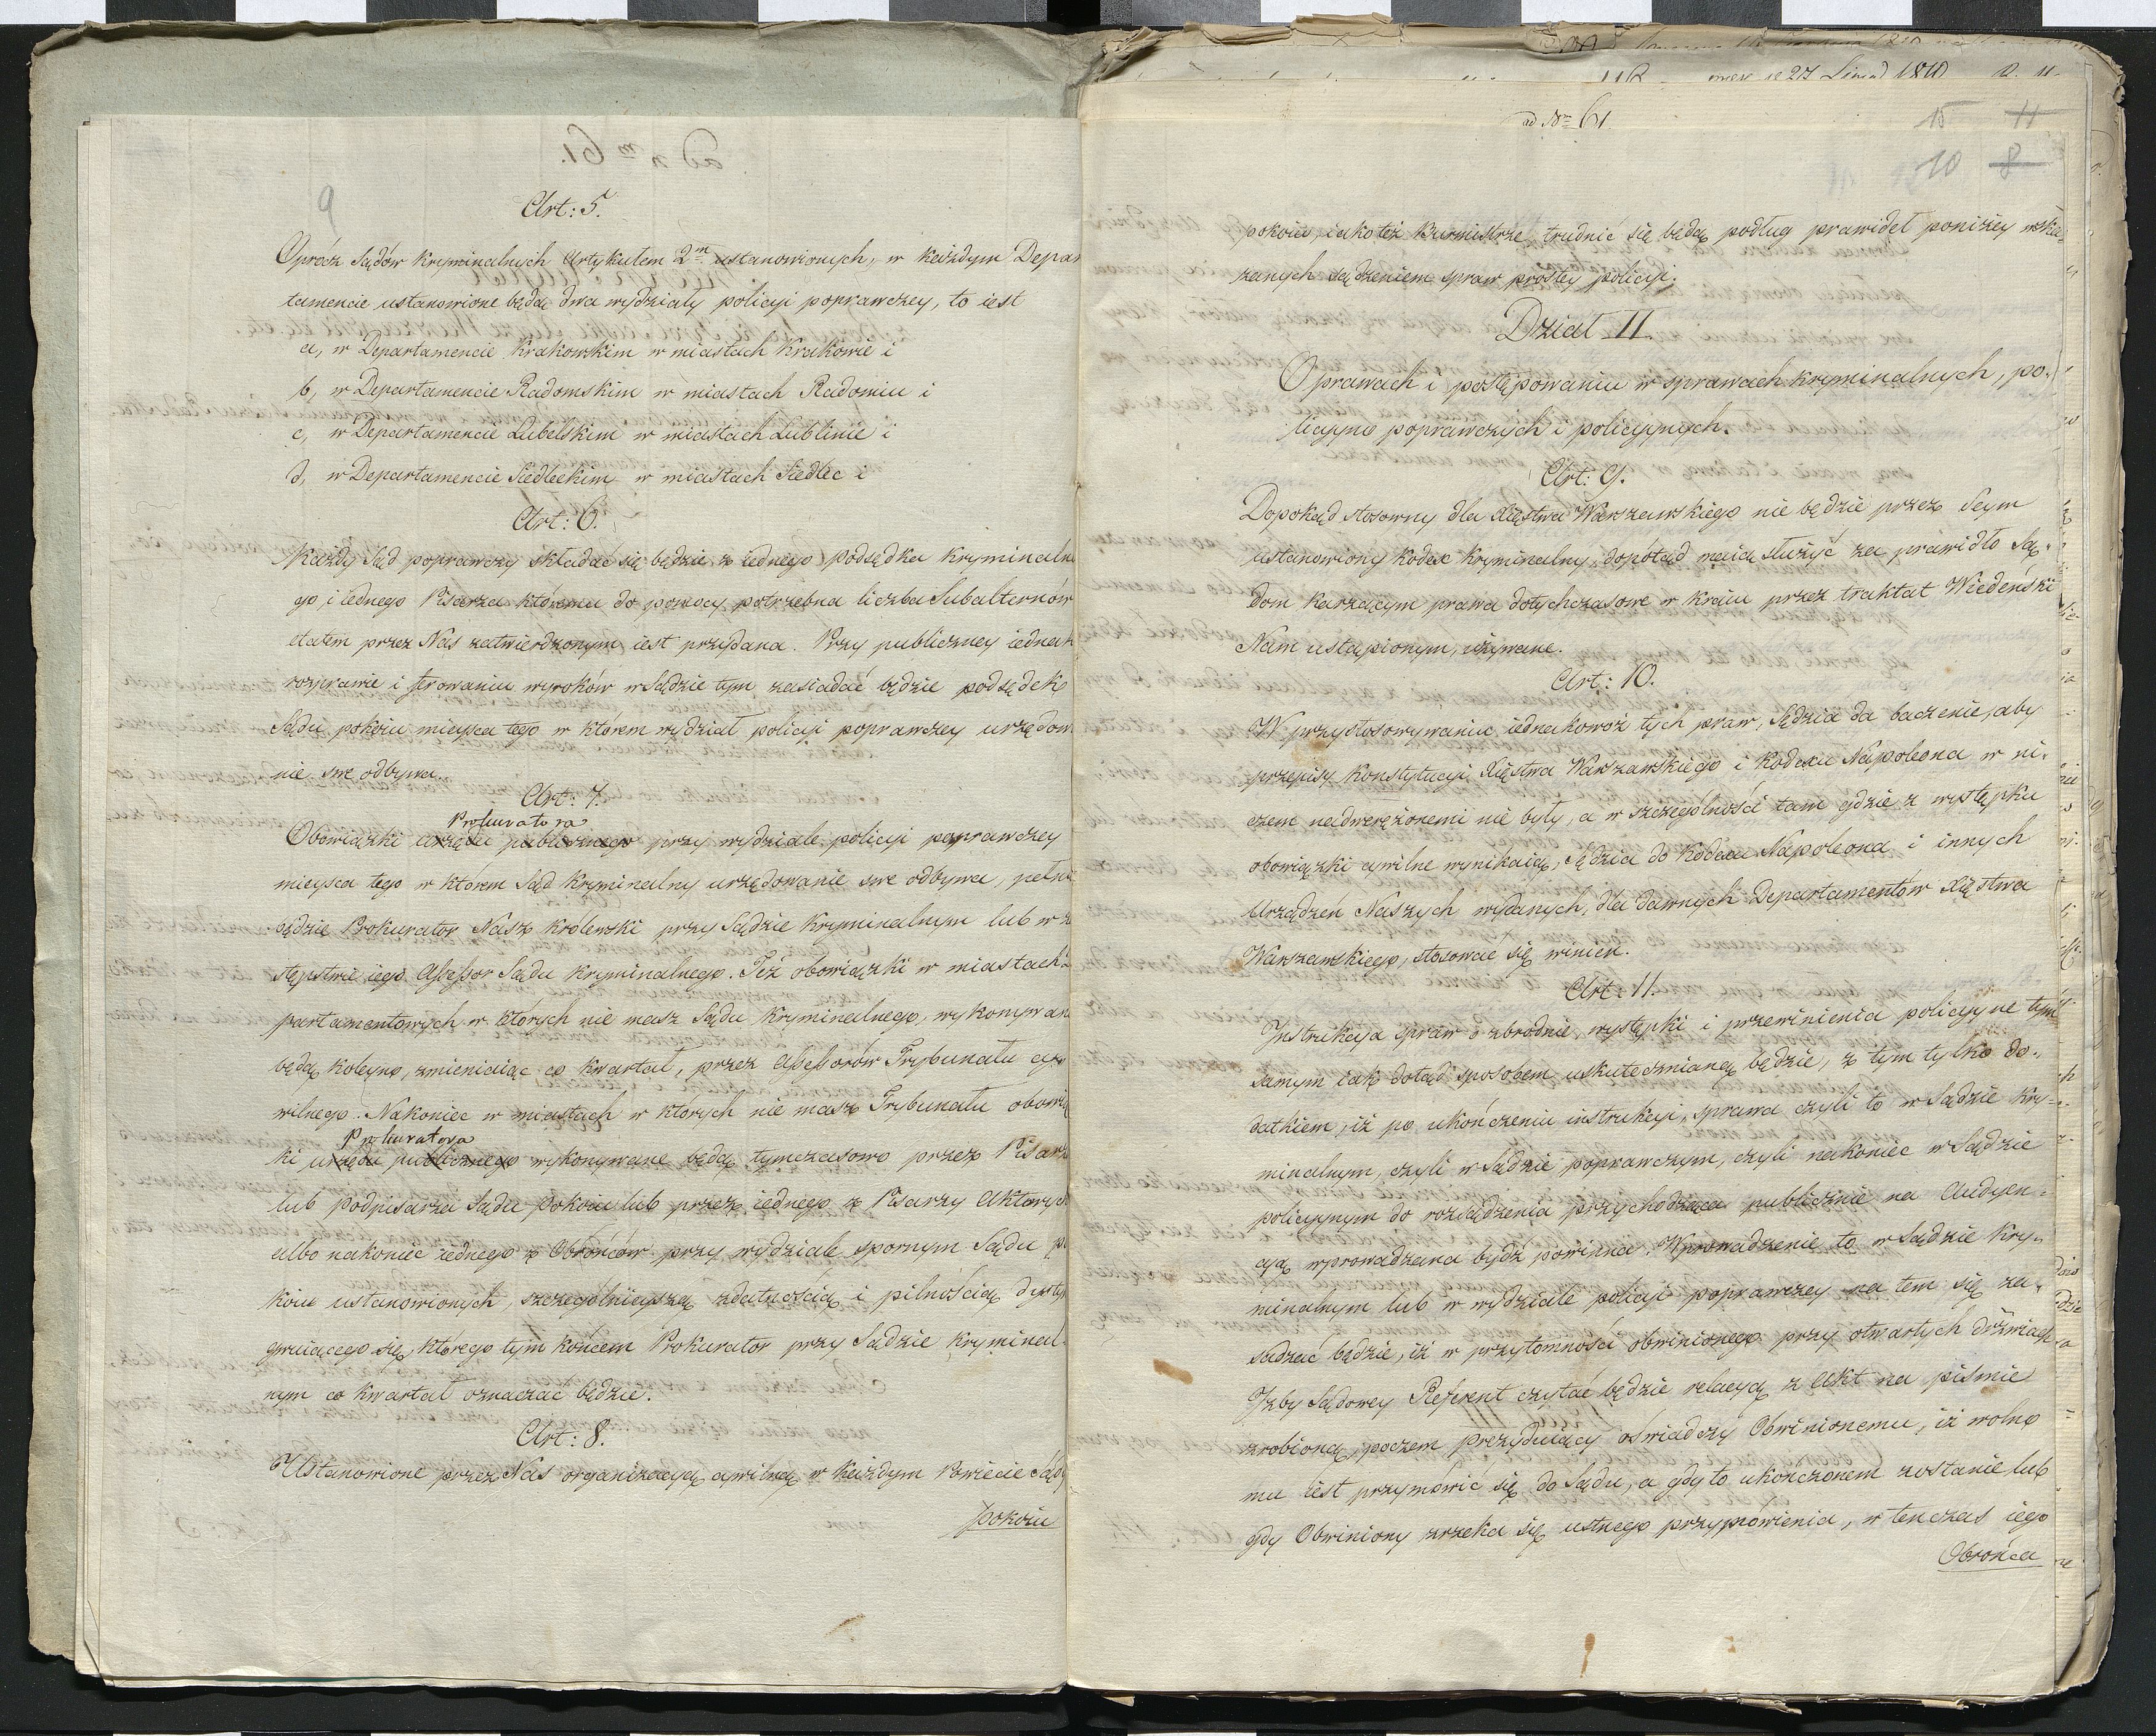 9
Art: 5.
Oprócz Sądów Kryminalnych Artykułem 2m ustanowionych, w każdym Depar
tamencie ustanowione będą dwa wydziały policyi poprawczey, to iest
a, w Departamencie Krakowskim w miastach Krakowie i
b, w Departamencie Radomskim w miastach Radomiu i
c, w Departamencie Lubelskim w miastach Lublinie i
d, w Departamencie Siedleckim w miastach Siedlec i
Art: 6.
Każdy Sąd poprawczy składać się będzie z iednego podsędka kryminalne
go, i iednego Pisarza któremu do pomocy potrzebna liczba Subalternów
etatem przez Nas zatwierdzonym iest przydana. Przy publiczney iednak
rozprawie i ferowaniu wyroków w Sądzie tym zasiadać będzie podsędek
Sądu pokoiu mieysca tego w którem wydział policyi poprawczey urzędowa
nie swe odbywa.
Art: 7.
Prokuratora
Obowiązki urzędu publicznego przy wydziale policyi poprawczey
mieysca tego w którem Sąd Kryminalny urzędowanie swe odbywa, pełnić
będzie Prokurator Nasz Królewski przy Sądzie Kryminalnym lub w za
stępstwie iego Assessor Sądu Kryminalnego. Też obowiązki w miastach
partamentowych w których nie masz Sądu Kryminalnego, wykonywane
będą koleyno, zmieniaiąc co kwartał, przez Assessorów Trybunału cy
wilnego. Nakoniec w miastach w których nie masz Trybunału obowią
Prokuratora
ki urzędu publicznego wykonywane będą tymczasowo przez Pisarza
lub podpisarza Sądu pokoiu lub przez iednego z Pisarzy Aktowych
albo nakoniec iednego z Obrońców przy wydziale spornym Sądu po
koiu ustanowionych, szczególnieyszą zdatnością i pilnością dysty
gwuiącego się, którego tym końcem Prokurator przy Sądzie Kryminal
nym co kwartał oznaczać będzie.
Art: 8.
Ustanowione przez Nas organizacyą cywilną w każdym Powiecie Sądy
pokoiu
27 1810
ad Nm 61.
15 11
10 8
pokoiu, iako też Burmistrze, trudnić się będą podług prawideł poniżey wska=
zanych sądzeniem spraw prostey policyi.
Dział II.
O prawach i postępowaniu w sprawach kryminalnych, po=
licyyno poprawczych i policyynych.
Art: 9.
Dopokąd stosowny dla Xięstwa Warszawskiego nie będzie przez Seym
ustanowiony Kodex Kryminalny, dopótąd maią służyć za prawidło Są=
dom karzącym prawa dotychczasowe w kraiu przez traktat Wiedeński
Nam ustąpionym, używane.
Art: 10.
W przystosowywaniu iednakowoż tych praw, Sędzia da baczenie, aby
przepisy Konstytucyi Xięstwa Warszawskiego i Kodexu Napoleona w ni=
czem nadwerężonemi nie były, a w szczególności tam gdzie z występku
obowiązki cywilne wynikaią, Sędzia do Kodexu Napoleona i innych
Urządzeń Naszych wydanych, dla dawnych Departamentów Xięstwa
Warszawskiego, stosować się winien.
Art: 11.
Instrukcya spraw o zbrodnie, występki i przewinienia policyyne tym
samym iak dotąd sposobem uskuteczniana będzie, z tym tylko do=
datkiem, iż po ukończeniu instrukcyi, sprawa czyli to w Sądzie Kry=
minalnym, czyli w Sądzie poprawczym, czyli nakoniec w Sądzie
policyynym do rozsądzenia przychodząca publicznie na Audyen=
cyą wprowadzana bydź powinna. Wprowadzenie to w Sądzie Kry=
minalnym lub w wydziale policyi poprawczey na tem się za=
sadzać będzie, iż w przytomności obwinionego przy otwartych drzwiach
Izby Sądowey Referent czytać będzie relacyą z Akt na piśmie
zrobioną, poczem prezyduiący oświadczy Obwinionemu, iż wolno
mu iest przymówić się do Sądu, a gdy to ukończonem zostanie lub
gdy Obwiniony zrzeka się ustnego przymówienia, w tenczas iego
Obrońca